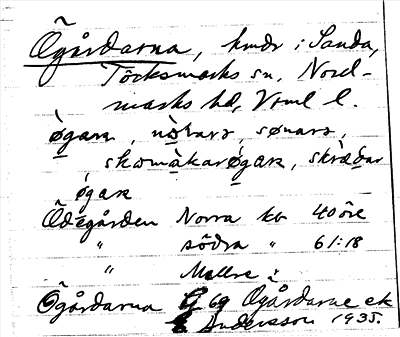 Ögårdarna, hmdr i Sanda,
Töcksmarks sn, Nord-
marks hd, Vrml l.
ògaɽɴ, nòrarə, sønarə,
skomàkarógaɽɴ, skrǽdar
ógaɽɴ
Ödegården Norra kb 40 öre
" södra " 61:18
" Mellre :
Ögårdarna 69 Ögårdarne ek
Andersson 1935.